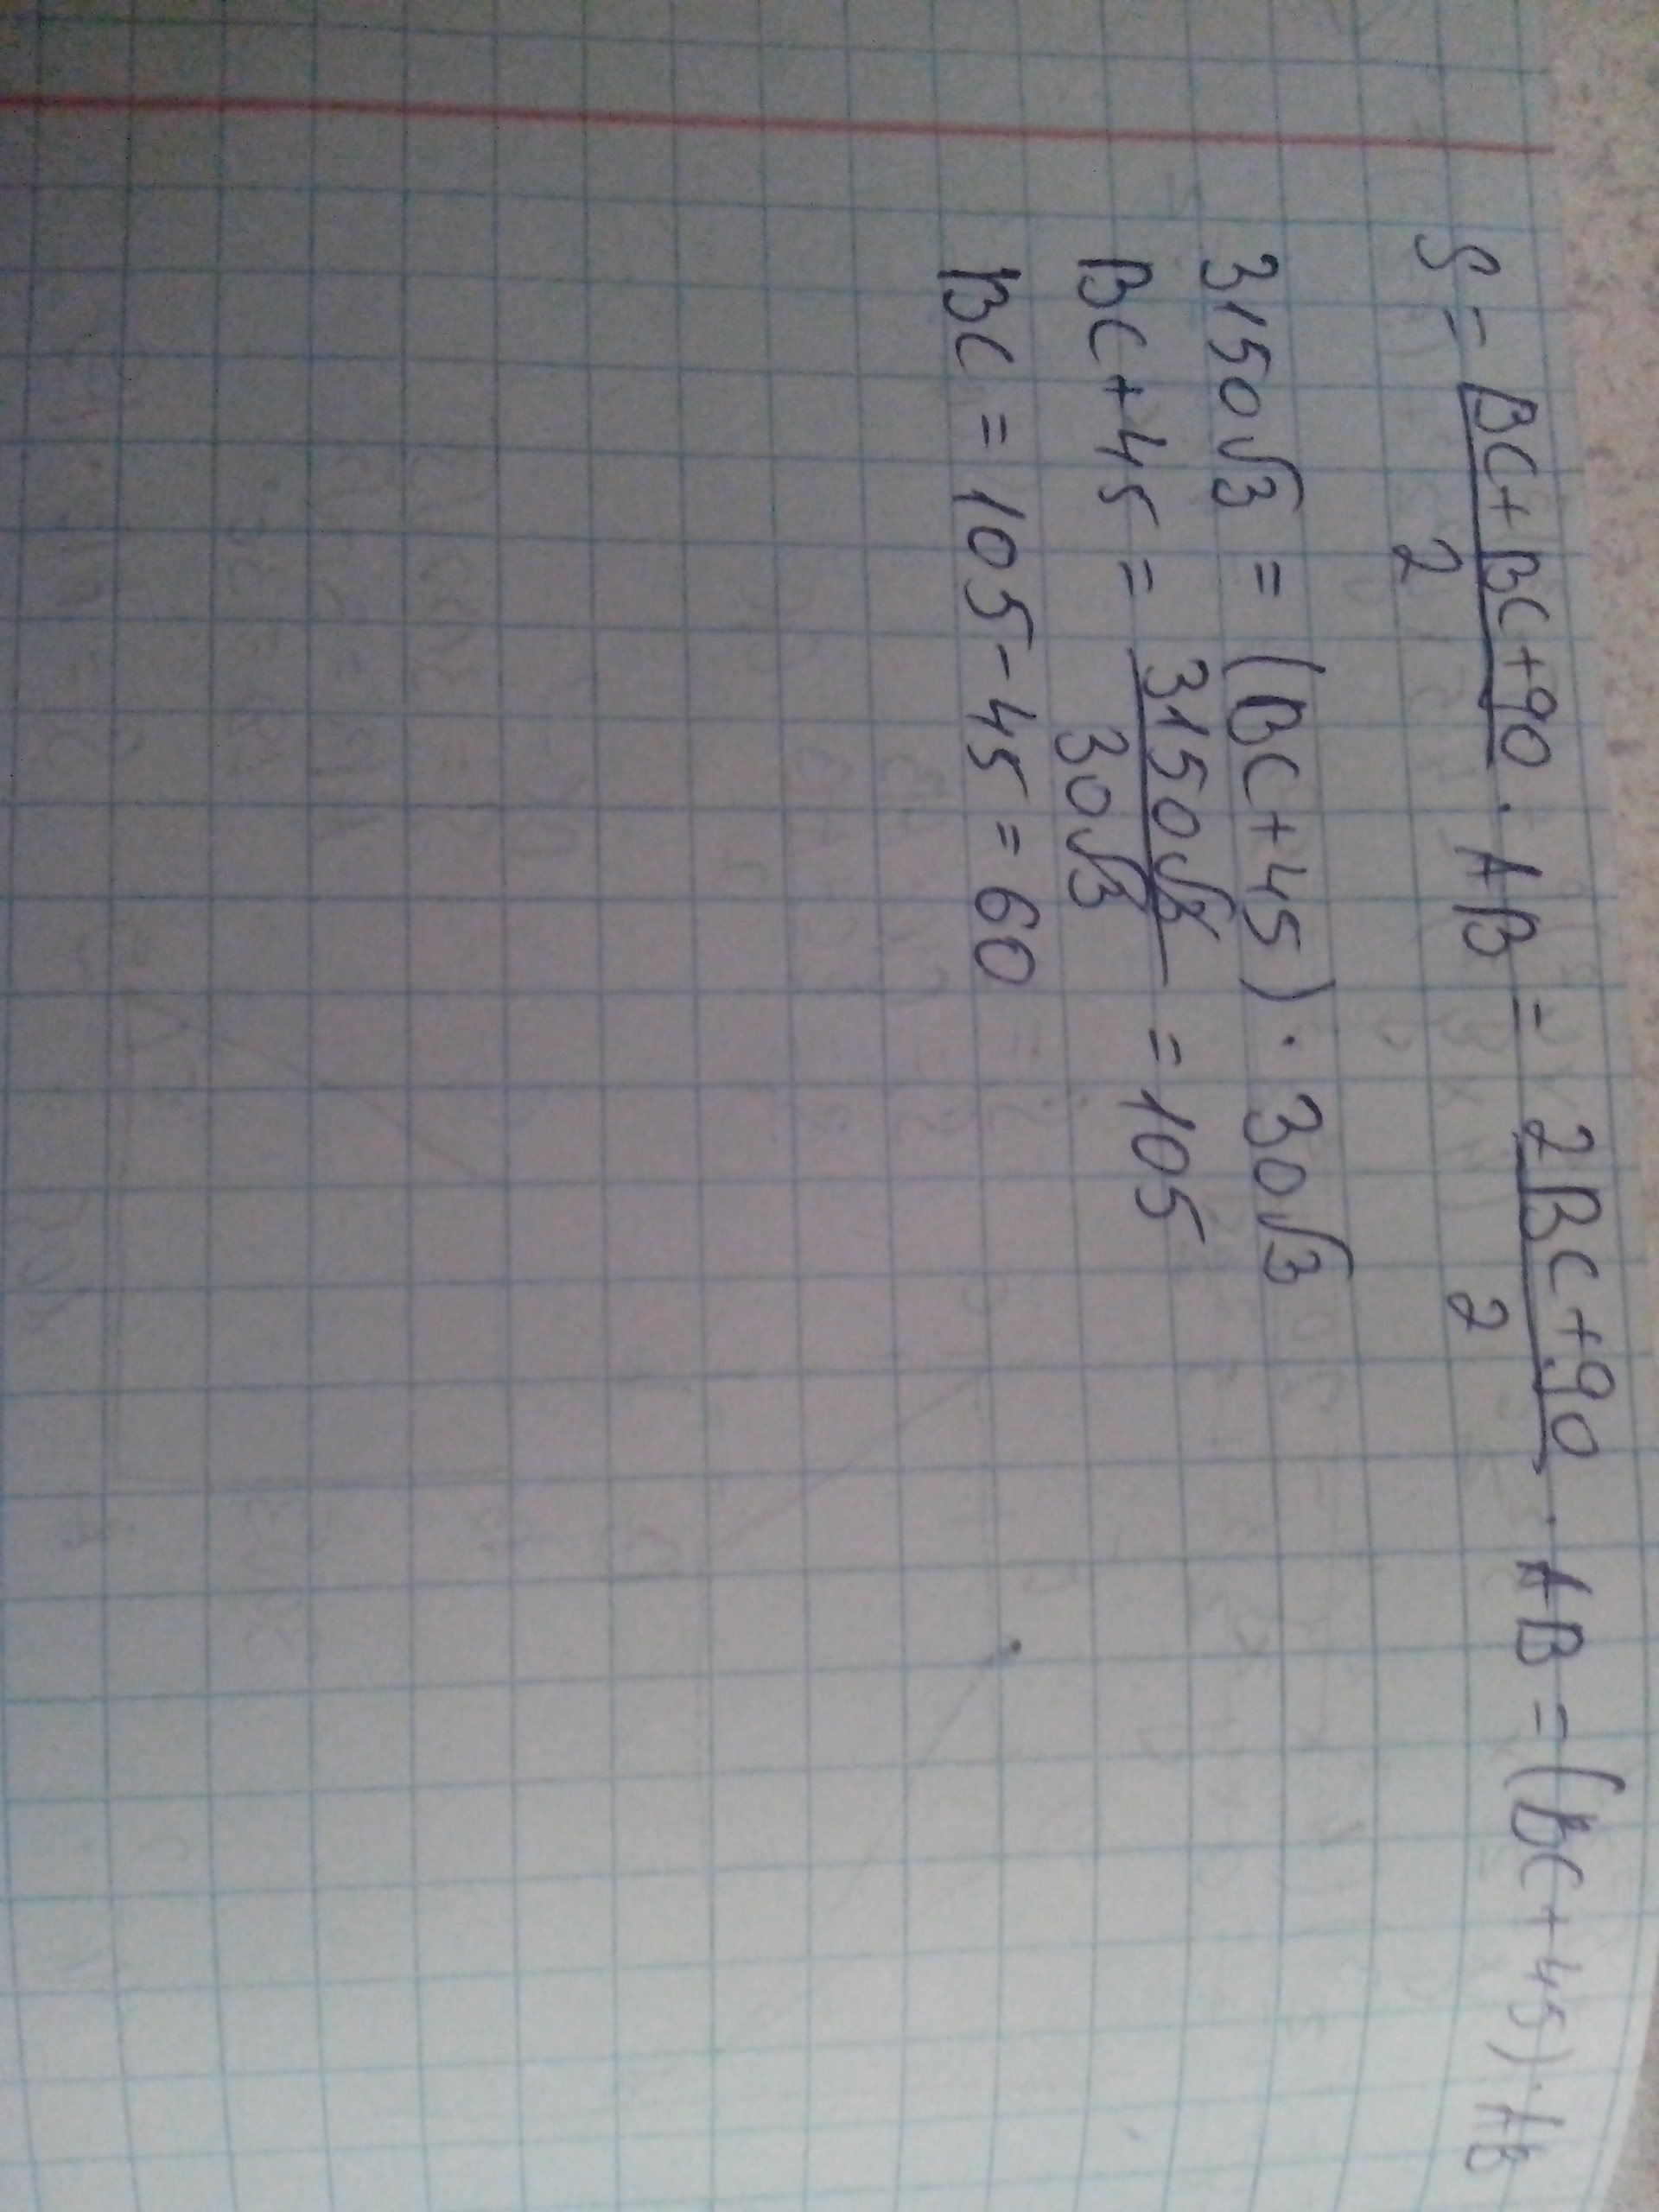 S = (BC+BC+90)/2 · AB = (2BC+90)/2 · AB = (BC+45)·AB
3150√3 = (BC+45)·30√3
BC+45 = 3150√3/30√3 = 105
BC = 105-45 = 60